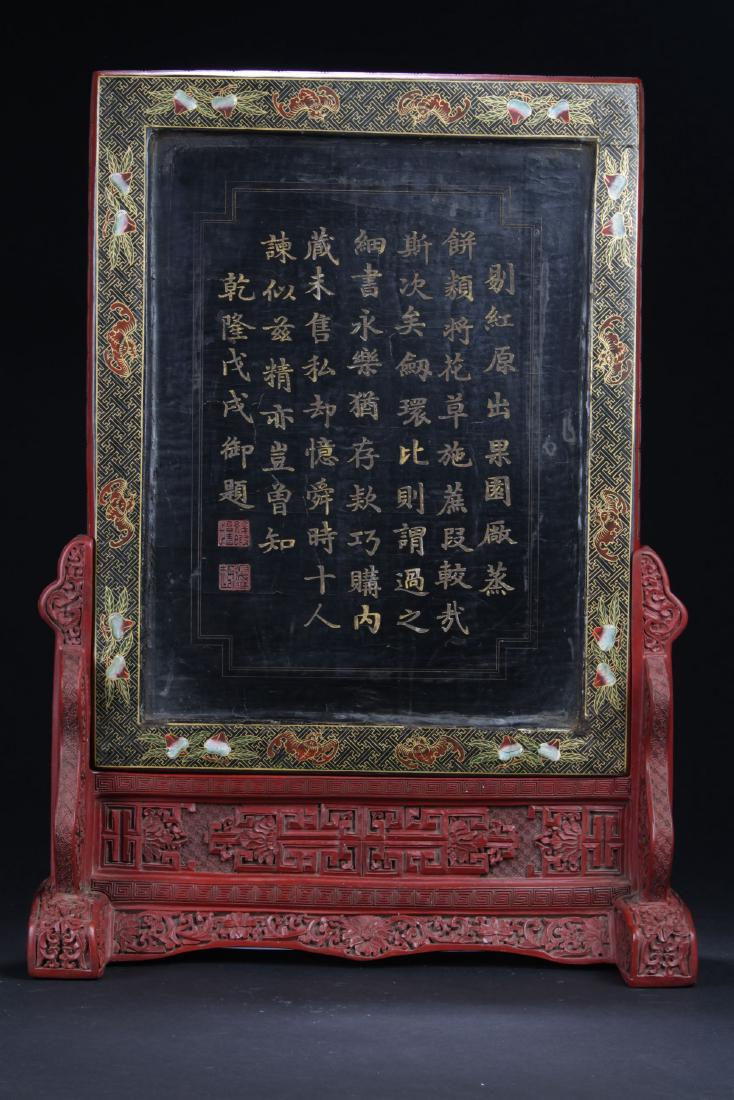 剔紅原出果園厰蒸
餅類將花草施蔗段較㦲
斯次矣劔環比則謂過之
細書永樂猶存欵巧購内
蔵未售私却憶舜時十人
諫似兹精亦豈曽知
乾隆戊戌御題